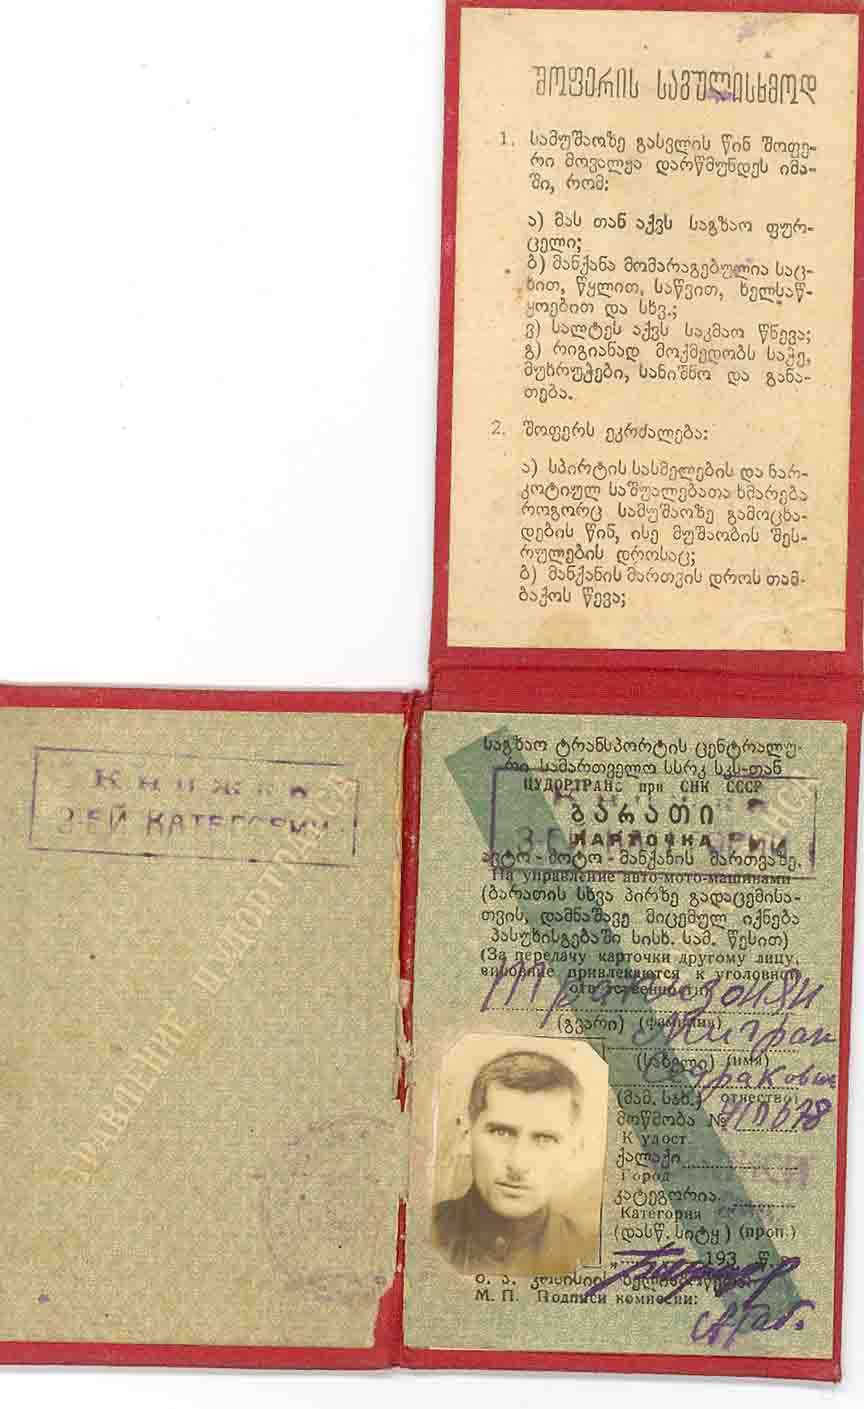 შოფერის საგულისხმოდ
1. სამუშაოზე გასვლის წინ შოფე-
რი მოვალეა დარწმუნდეს იმა-
ში, რომ:
ა) მას თან აქვს საგზაო ფურ-
ცელი;
ბ) მანქანა მომარაგებულია საც-
ხით, წყლით, საწვით, ხელსაწ-
ყოებით და სხვ.;
ვ) სალტეს აქვს საკმაო წნევა;
გ) რიგიანად მოქმედობს საჭე,
მუხრუჭები, სანიშნო და განა-
თება.
2. შოფერს ეკრძალება:
ა) სპირტის სასმელების და ნარ-
კოტიულ საშუალებათა ხმარება
როგორც სამუშაოზე გამოცხა-
დების წინ, ისე მუშაობის შეს-
რულების დროსაც;
ბ) მანქანის მართვის დროს თამ-
ბაქოს წევა;
КНИЖКА
3-ЕЙ КАТЕГОРИИ
საგზაო ტრანსპორტის ცენტრალუ-
რი სამართველო სსრკ სკს-თან
ЦУДОРТРАНС при СНК СССР
ბარათი
КАРТОЧКА
ავტო-მოტო-მანქანის მართვაზე.
На управление авто-мото-машинами
(ბარათის სხვა პირზე გადაცემისა-
თვის, დამნაშავე მიცემულ იქნება
პასუხისგებაში სისხ. სამ. წესით)
(За передачу карточки другому лицу,
виновные привлекаются к уголовной
ответственности)
(გვარი) (фамилия)
Мигран
(სახელი) (имя)
(მამ. სახ.) отчество)
მოწმობა №
К удост.
ქალაქი
Город
კატეგორია
Категория
(დასწ. სიტყ.) (проп.)
193 წ.
ბ. ა. კომისიის ხელისმოწერა:
М. П. Подписи комиссии: